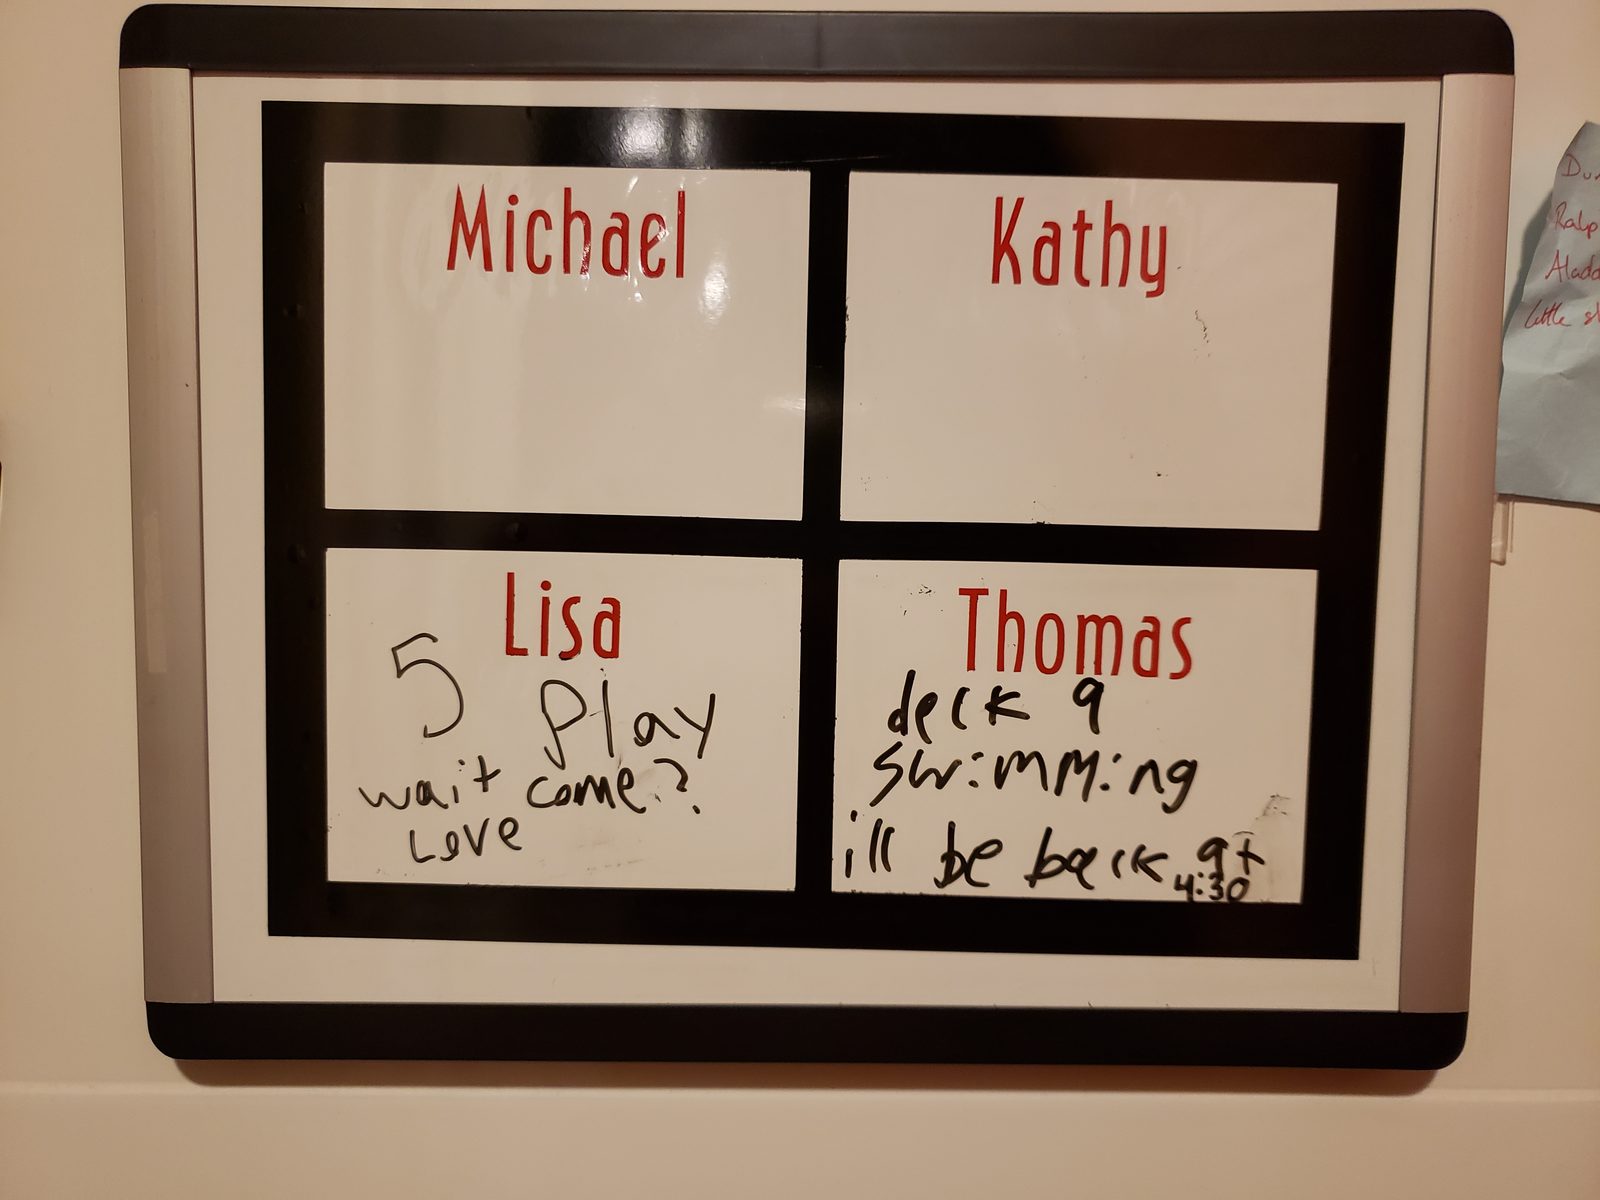 Michael
Kathy
Lisa
5 Play
wait come?
Love
Thomas
deck 9
swimming
ill be back at
4:30
Ralp
little